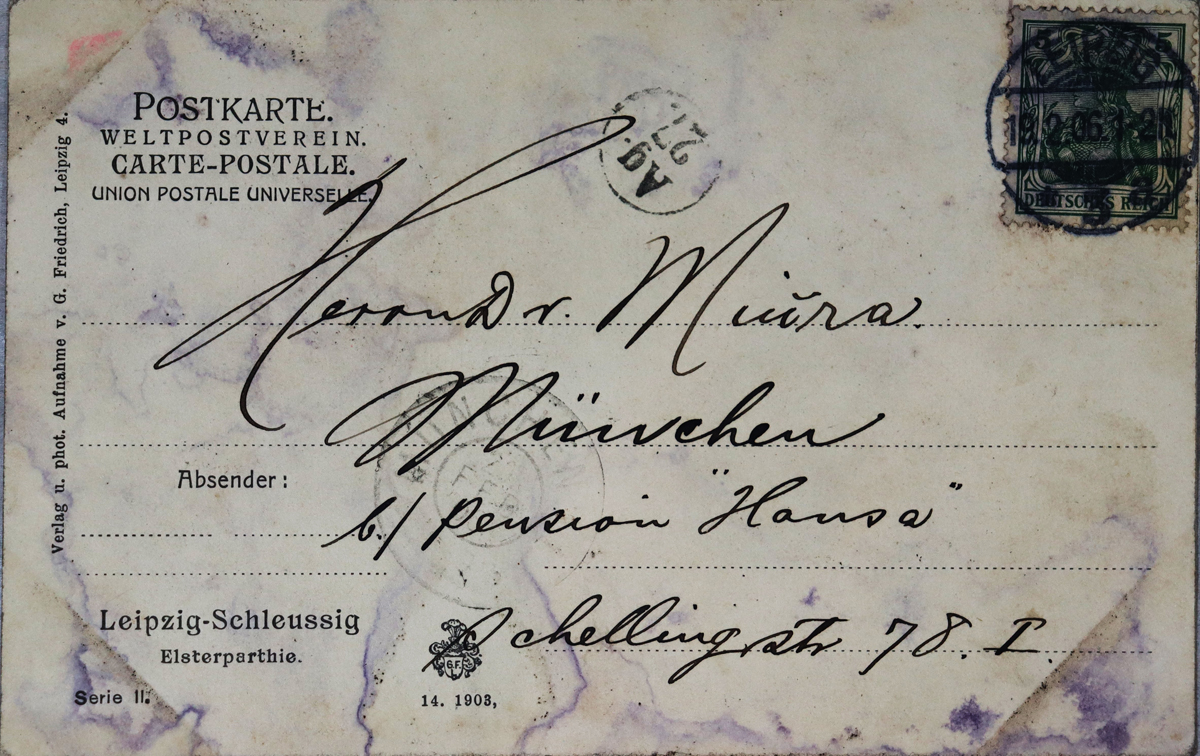 POSTKARTE.
WELTPOSTVEREIN.
CARTE-POSTALE.
UNION POSTALE UNIVERSELLE.
Ag. 27.
LEIPZIG
19.2.06.1-2N
3
5 5
DEUTSCHES REICH
Verlag u. phot. Aufnahme v. G. Friedrich, Leipzig 4.
Herrn Dr. Miura.
München
MÜNCHEN
FEB
Absender:
b/ Pension "Hansa"
Schellingstr 78. I.
Leipzig-Schleussig
Elsterparthie.
G.F.
Serie II.
14. 1903,